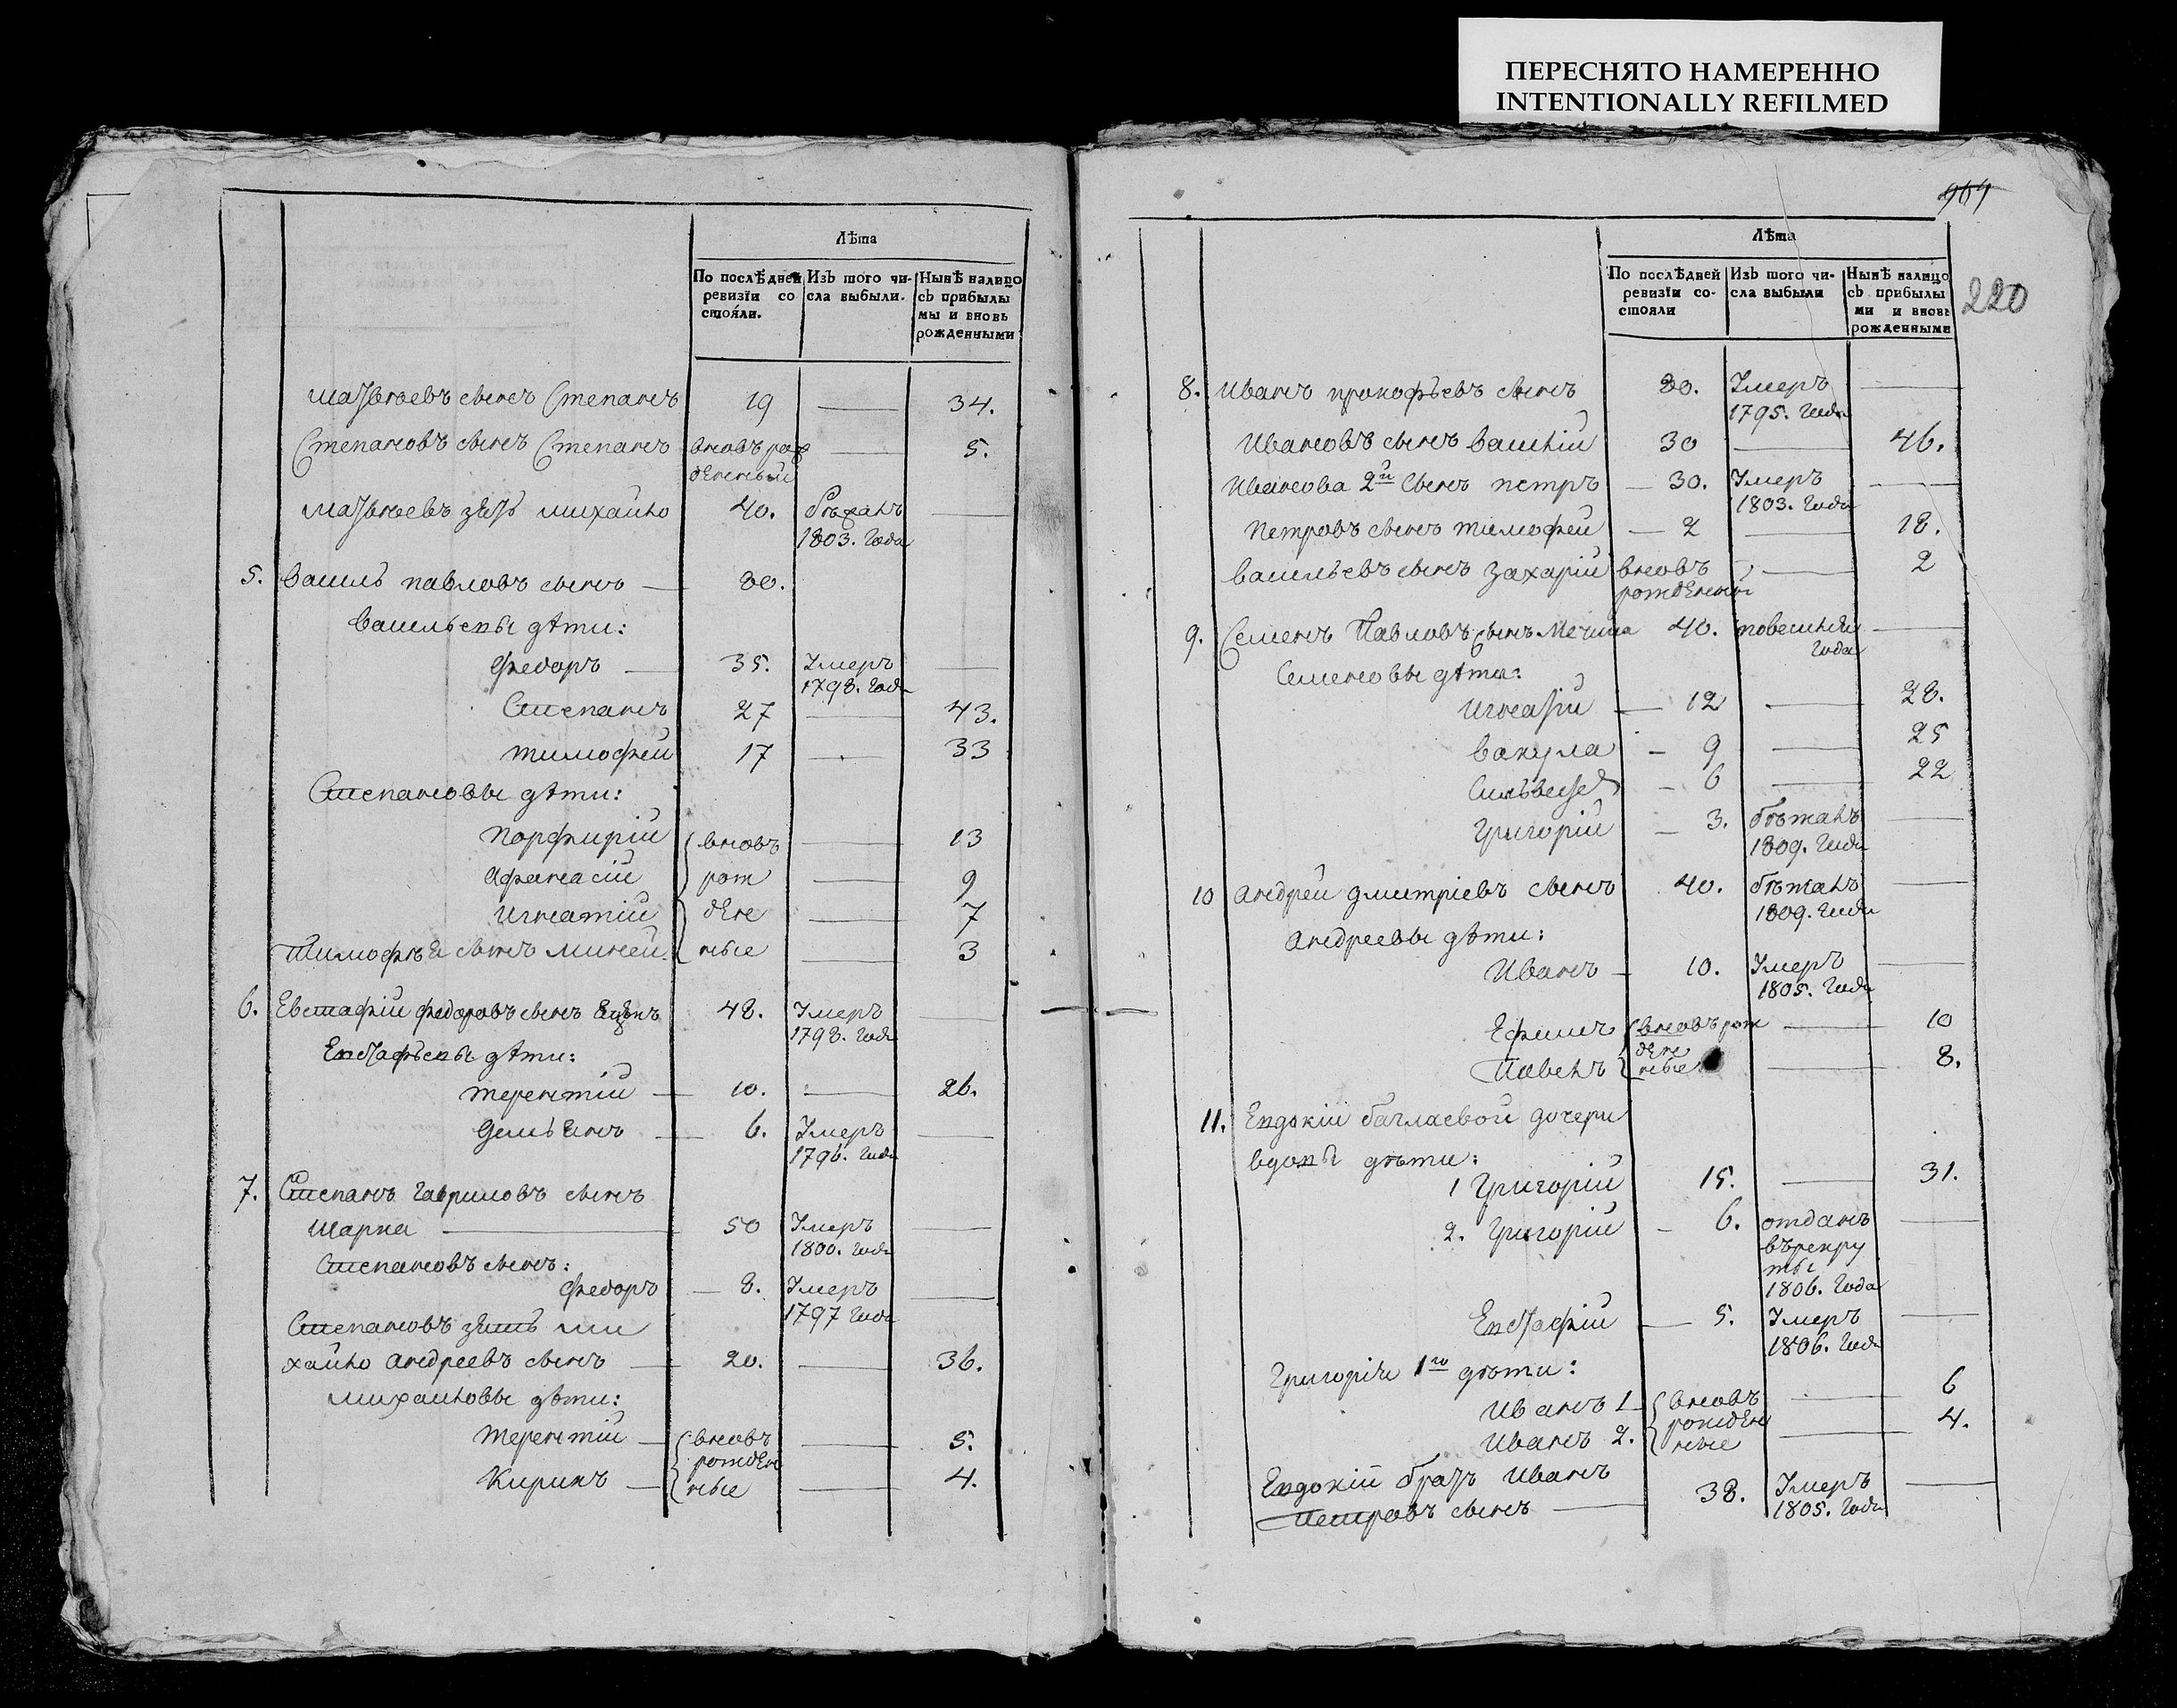 ПЕРЕСНЯТО НАМЕРЕННО
INTENTIONALLY REFILMED
Лѣта
По послѣдней ревизїи со стояли.
Изъ того числа выбыли.
Нынѣ налицо съ прибылы мы и вновь рожденными
матвѣевъ сынъ Степанъ 19 — 34.
Степановъ сынъ Степанъ вновъ рож — 5.
денный
матвѣевъ зять михайло 40. бѣжалъ —
1803. Года
5. василь павловъ сынъ — 80.
васильевы дѣти:
Федоръ — 35. Умеръ —
1798. Года
Степанъ 27 — 43.
тимофей 17 — 33
Степановы дѣти:
Порфирій вновъ — 13
Афанасій рож — 9
Игнатій дене — 7
Тимофѣя сынъ миней. ные — 3
6. Евстафій федоровъ сынъ 48. Умеръ —
1798. Года
Евстафьевы дѣти:
терентій — 10. — 26.
Демьянъ — 6. Умеръ —
1796. Года
7. Степанъ Гавриловъ сынъ
шарка — 50 Умеръ —
1800. Года
Степановъ сынъ:
Федоръ — 8. Умеръ —
1797 Года
Степановъ зять ми
хайло андреевъ сынъ — 20. — 36.
михайловы дѣти:
терентій — вновъ — 5.
рожден
Кирилъ — ные — 4.
964
220
Лѣта
По послѣдней ревизїи состояли
Изъ того числа выбыли
Нынѣ налицо съ прибылы ми и вновь рожденными
8. Иванъ прокофьевъ сынъ 80. Умеръ —
1795. Года
Ивановъ сынъ василій 30 — 46.
Иванова 2й сынъ петръ — 30. Умеръ —
1803. Года
Петровъ сынъ тимофей — 2 — 18.
васильевъ сынъ захарій вновъ — 2
рожденный
9. Семенъ Павловъ сынъ 40. —
Года
Семеновы дѣти:
Игнатій — 12 — 28.
вакула — 9 — 25
Сильвестръ — 6 — 22
Григорій — 3. бѣжалъ —
1809. Года
10 андрей дмитріевъ сынъ 40. бѣжалъ —
1809. Года
андреевы дѣти:
Иванъ — 10. Умеръ —
1805. Года
Ефимъ вновъ рож — 10
дене
Павелъ ные — 8.
11. Евдокіи баглаевой дочери
вдовы дѣти:
1 Григорій 15. — 31.
2. Григорій — 6. отданъ —
върекру
ты
1806. Года
Евстафій — 5. Умеръ —
1806. Года
Григорія 1го дѣти:
Иванъ 1 вновъ — 6
рожден
Иванъ 2. ные — 4.
Евдокіи братъ Иванъ
Петровъ сынъ — 38. Умеръ —
1805. Года